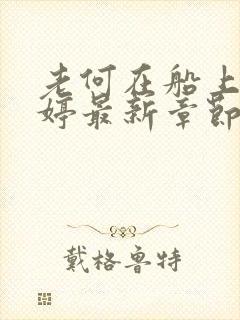 老何在船上
婷最新章节
戴格鲁特